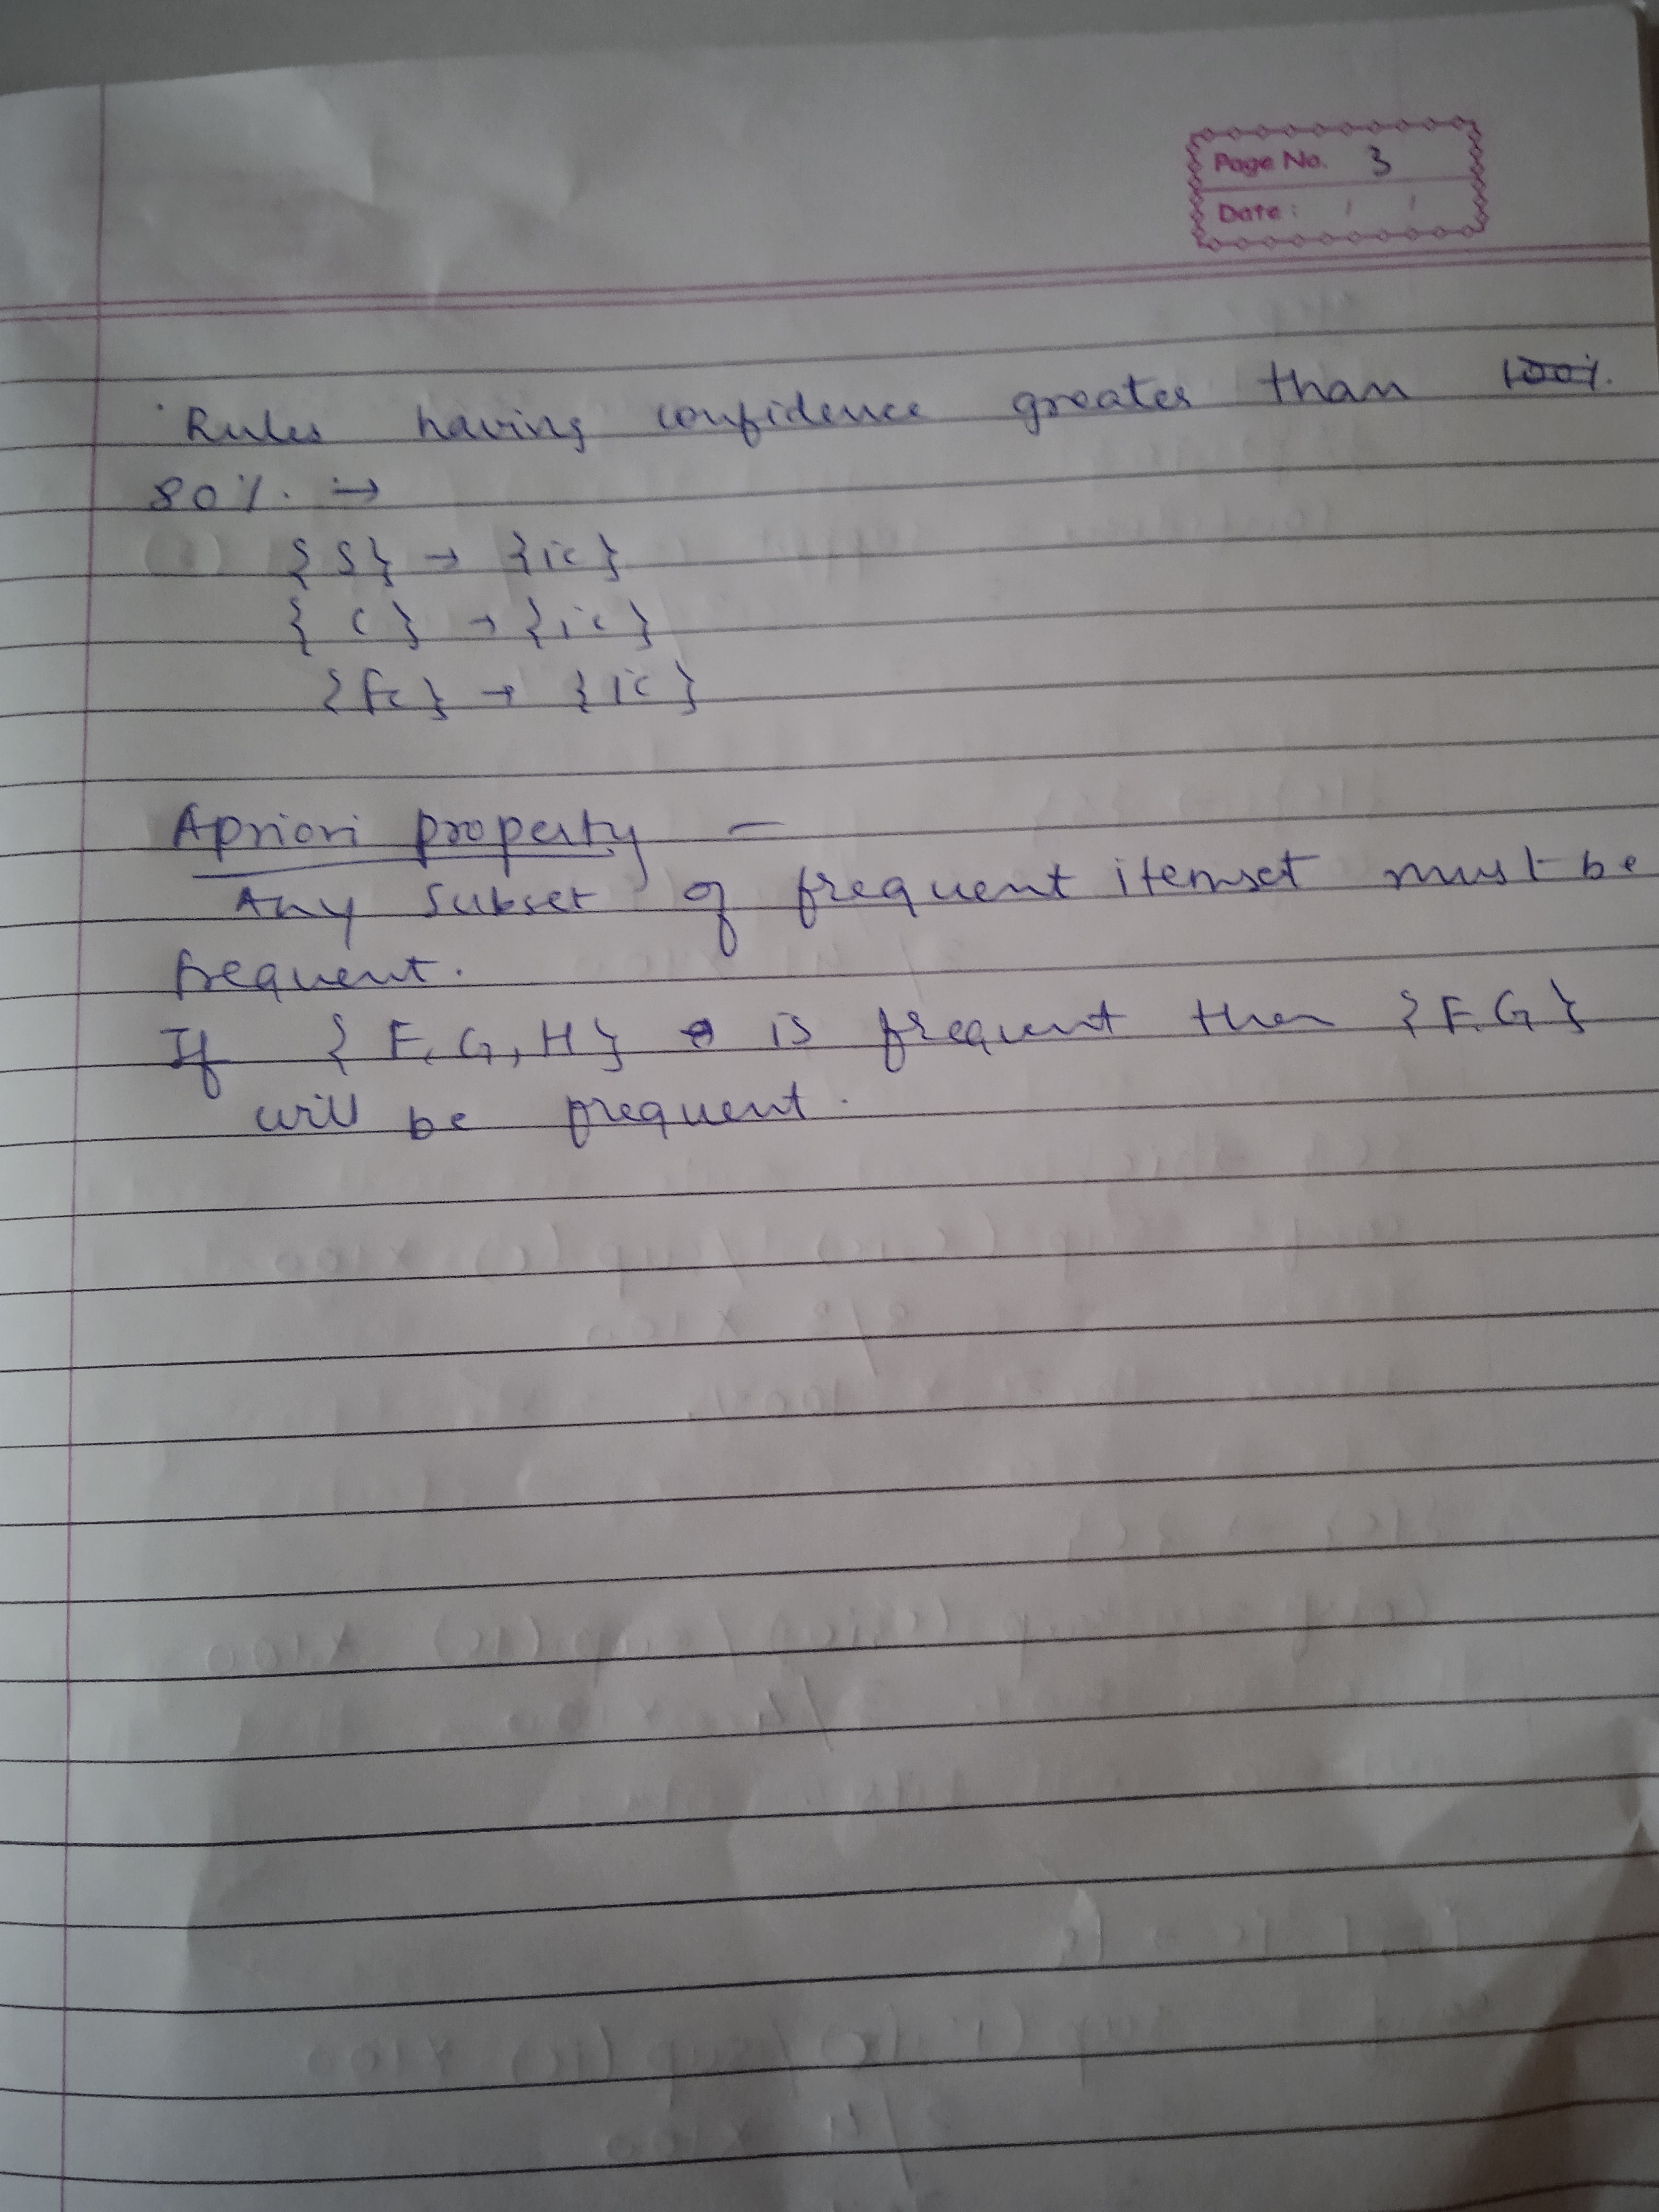 Page No. 3
Date: / /
Rules having confidence greater than 100%.
80%. :→
{S} → {ic}
{ C } → {ic}
{Fc} → {ic}
Apriori property –
Any subset of frequent itemset must be
frequent.
If { F, G, H} is frequent then { F, G }
will be frequent.